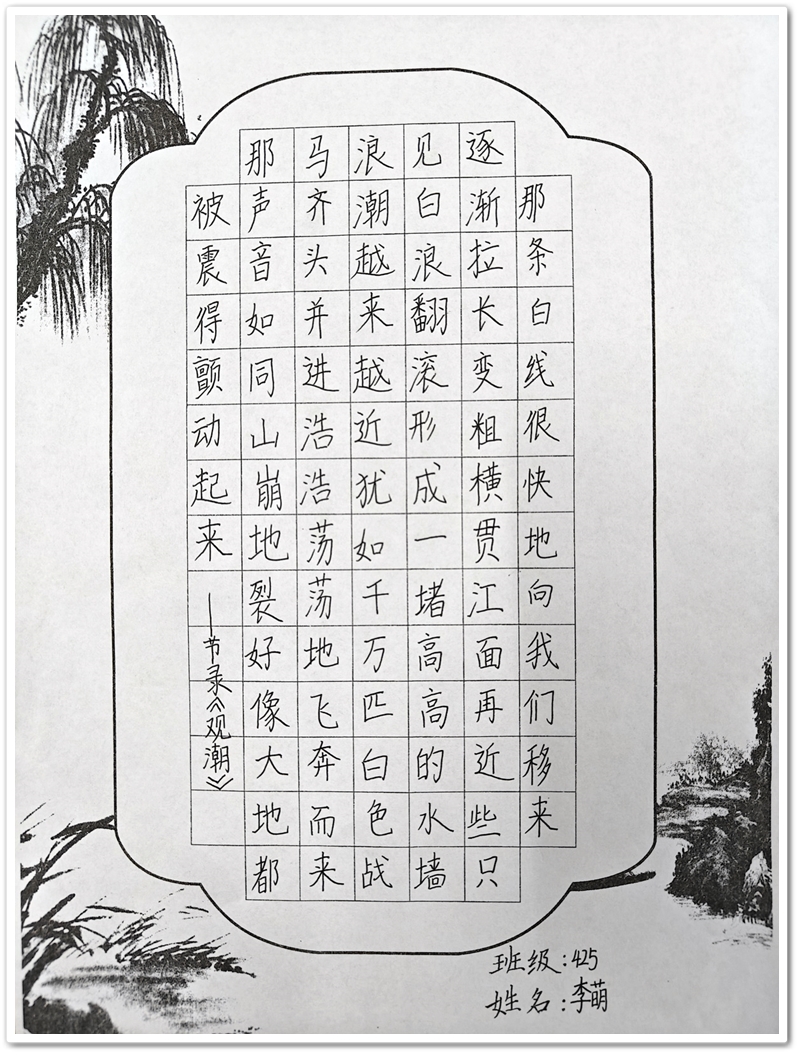 那条白线很快地向我们移来
逐渐拉长变粗横贯江面再近些只
见白浪翻滚形成一堵高高的水墙
浪潮越来越近犹如千万匹白色战
马齐头并进浩浩荡荡地飞奔而来
那声音如同山崩地裂好像大地都
被震得颤动起来
—节录《观潮》
班级:425
姓名:李萌